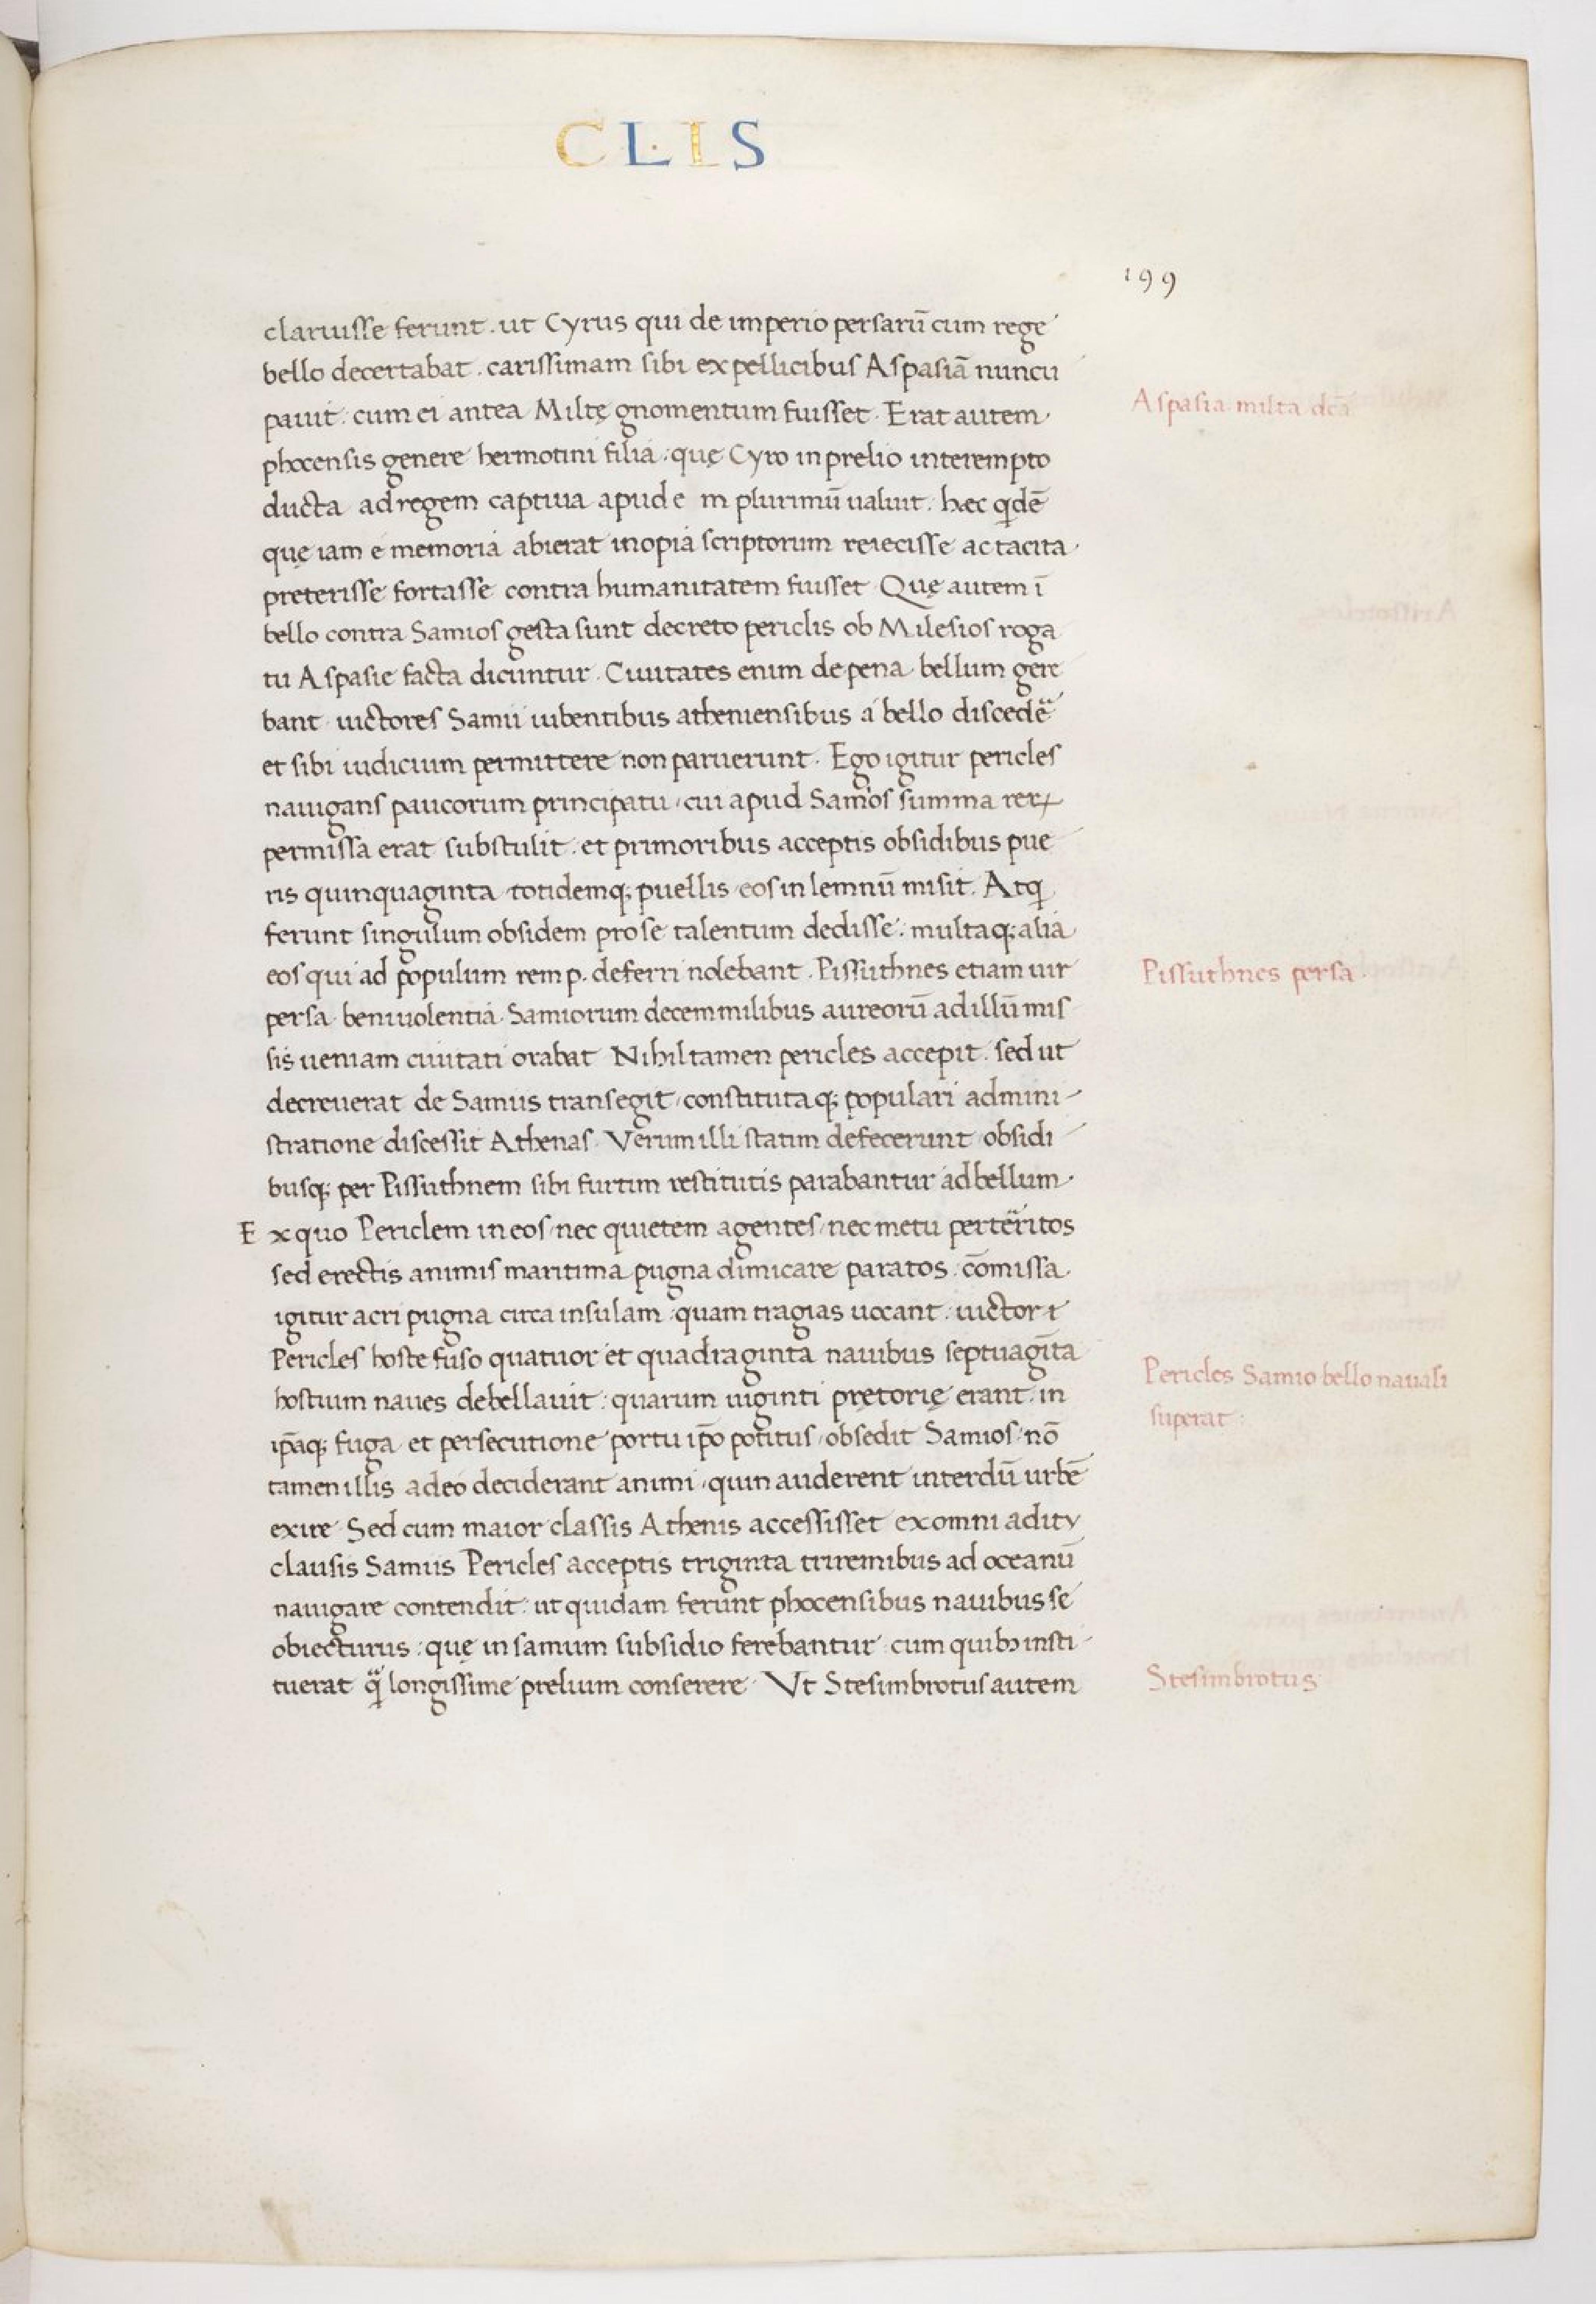 CL·IS
199
claruisse ferunt. ut Cyrus qui de imperio persarū cum rege
bello decertabat. carissimam sibi ex pellicibus Aspasiā nuncu
pauit: cum ei antea Miltę gnomentum fuisset. Erat autem
Aspasia milta dca
phocensis genere hermotini filia: quę Cyro in prelio interempto
ducta ad regem captiua apud e m plurimū ualuit. hæc qdē
quę iam e memoria abierat inopia scriptorum reiecisse ac tacita
preterisse fortasse contra humanitatem fuisset. Quę autem ī
bello contra Samios gesta sunt decreto periclis ob Milesios roga
tu Aspasie facta dicuntur. Ciuitates enim de pena bellum gere
bant uictores Samii iubentibus atheniensibus a bello discedē
et sibi iudicium permittere non paruerunt. Ego igitur pericles
nauigans paucorum principatu, cui apud Samios summa rerꝝ
permissa erat substulit: et primoribus acceptis obsidibus pue
ris quinquaginta totidemq; puellis eos in lemnū misit. Atq
ferunt singulum obsidem pro se talentum dedisse: multaq; alia
eos qui ad populum rem p. deferri nolebant. Pissuthnes etiam uir
Pissuthnes persa
persa beniuolentia Samiorum decem milibus aureorū ad illū mis
sis ueniam ciuitati orabat. Nihil tamen pericles accepit. sed ut
decreuerat de Samiis transegit, constitutaq; populari admini-
stratione discessit Athenas. Verum illi statim defecerunt obsidi
busq; per Pissuthnem sibi furtim restitutis parabantur ad bellum.
Ex quo Periclem in eos nec quietem agentes, nec metu perterritos
sed erectis animis maritima pugna dimicare paratos. cōmissa
igitur acri pugna circa insulam quam tragias uocant. uictor &
Pericles hoste fuso quatuor et quadraginta nauibus septuagīta
Pericles Samio bello nauali
superat:
hostium naues debellauit: quarum uiginti pretorię erant. in
ip̄aq; fuga et persecutione portu ip̄o potitus, obsedit Samios. nō
tamen illis adeo deciderant animi, quin auderent interdū urbē
exire. Sed cum maior classis Athenis accessisset ex omni aditu
clausis Samiis Pericles acceptis triginta triremibus ad oceanū
nauigare contendit: ut quidam ferunt phocensibus nauibus se
obiecturus: quę in samum subsidio ferebantur cum quibꝫ insti-
tuerat q̈ longissime prelium conserere. Vt Stesimbrotus autem
Stesimbrotus